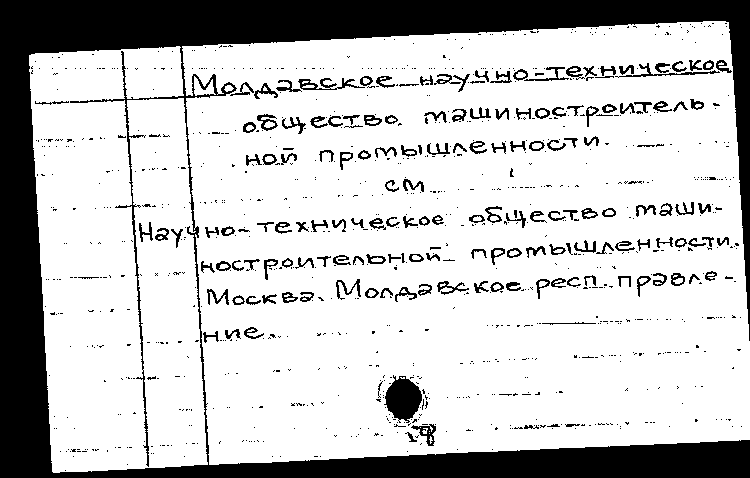 Молдавское научно-техническое
общество машиностроитель-
ной промышленности.
см
Научно-техническое общество маши-
ностроительной промышленности.
Москва. Молдавское респ. правле-
ние.